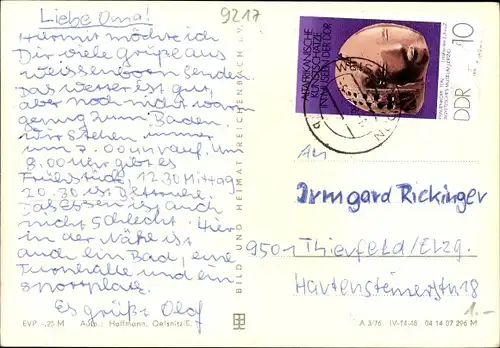 Liebe Oma!
Hiermit möchte ich
Dir viele grüße aus
weissenborn senden
Das wetter ist gut,
aber noch nicht warm
genug zum Baden.
Wir stehen immer
um 7.00 uhr auf. Um
8.00 Uhr gibt es
Frühstück, 12.30 Mittag
20.30 ist Bettruhe.
Das Essen ist auch
nicht schlecht. Hier
in der Nähe ist
auch ein Bad, eine
Turnhalle und ein
sportplatz.
Es grüßt Olaf
9217
BILD UND HEIMAT REICHENBACH i. V.
AFRIKANISCHE
KUNSTSCHÄTZE
IN MUSEEN DER DDR
DDR 10
An
Irmgard Rickinger
9501 Thierfeld/Erzg.
Hartensteinerstr 18
1.-
EVP -,25 M Aufn.: Hoffmann, Oelsnitz/E.
A 3/76 IV-14-48 04 14 07 296 M